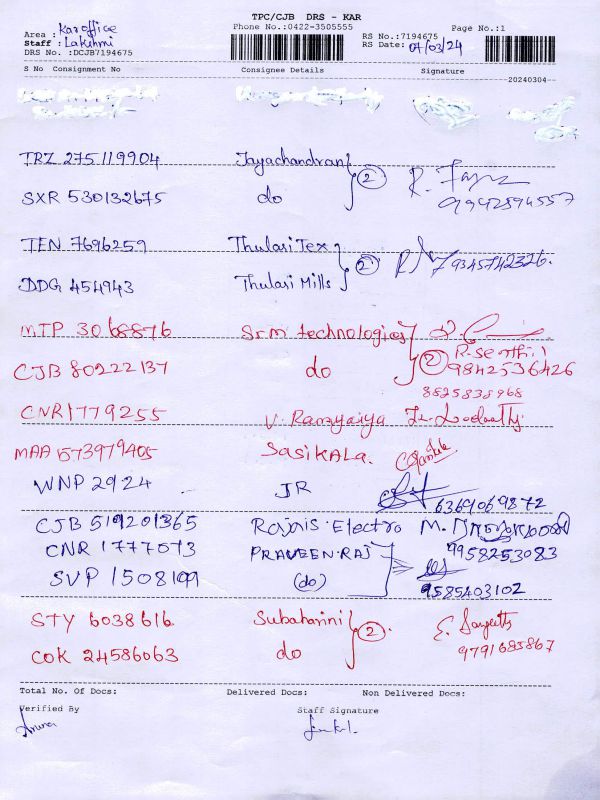 TPC/CJB DRS - KAR
Area : Kar office Phone No.:0422-3505555 Page No.:1
Staff : Lakshmi RS No.:7194675
DRS No. :DCJB7194675 RS Date: 04/03/24
S No Consignment No Consignee Details Signature
20240304
TRZ 275119904 Jayachandran 2
SXR 530132675 do 9942894557
TEN 7696259 Thulasi Tex 2 9345742326.
DDG 454943 Thulasi Mills
MTP 3068876 Srm technologies
CJB 80222137 do 2 R-Senthil 9842536426
8825838968
CNR1779255 V. Ramyaiya
MAA 573979405 Sasikala.
WNP 2924 JR 6369069872
CJB 519201365 Rajais Electro M.
CNR 1777073 PRAVEEN RAJ 9958253083
SVP 1508199 (do) 9585403102
STY 6038616 Subaharini 2.
COK 24586063 do 9791685867
Total No. Of Docs: Delivered Docs: Non Delivered Docs:
Verified By Staff Signature